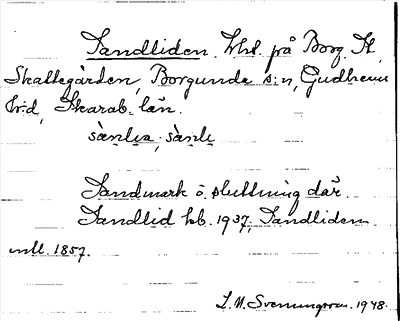 Sandliden, lht. på Borg. St.
Skattegården, Borgunda s:n, Gudhems
hrd, Skarab. län.
sànlia, sànli
Sandmark o. sluttning där.
Sandlid kb. 1937, Sandliden
mtl. 1857.
S. M. Svenningsson. 1948.